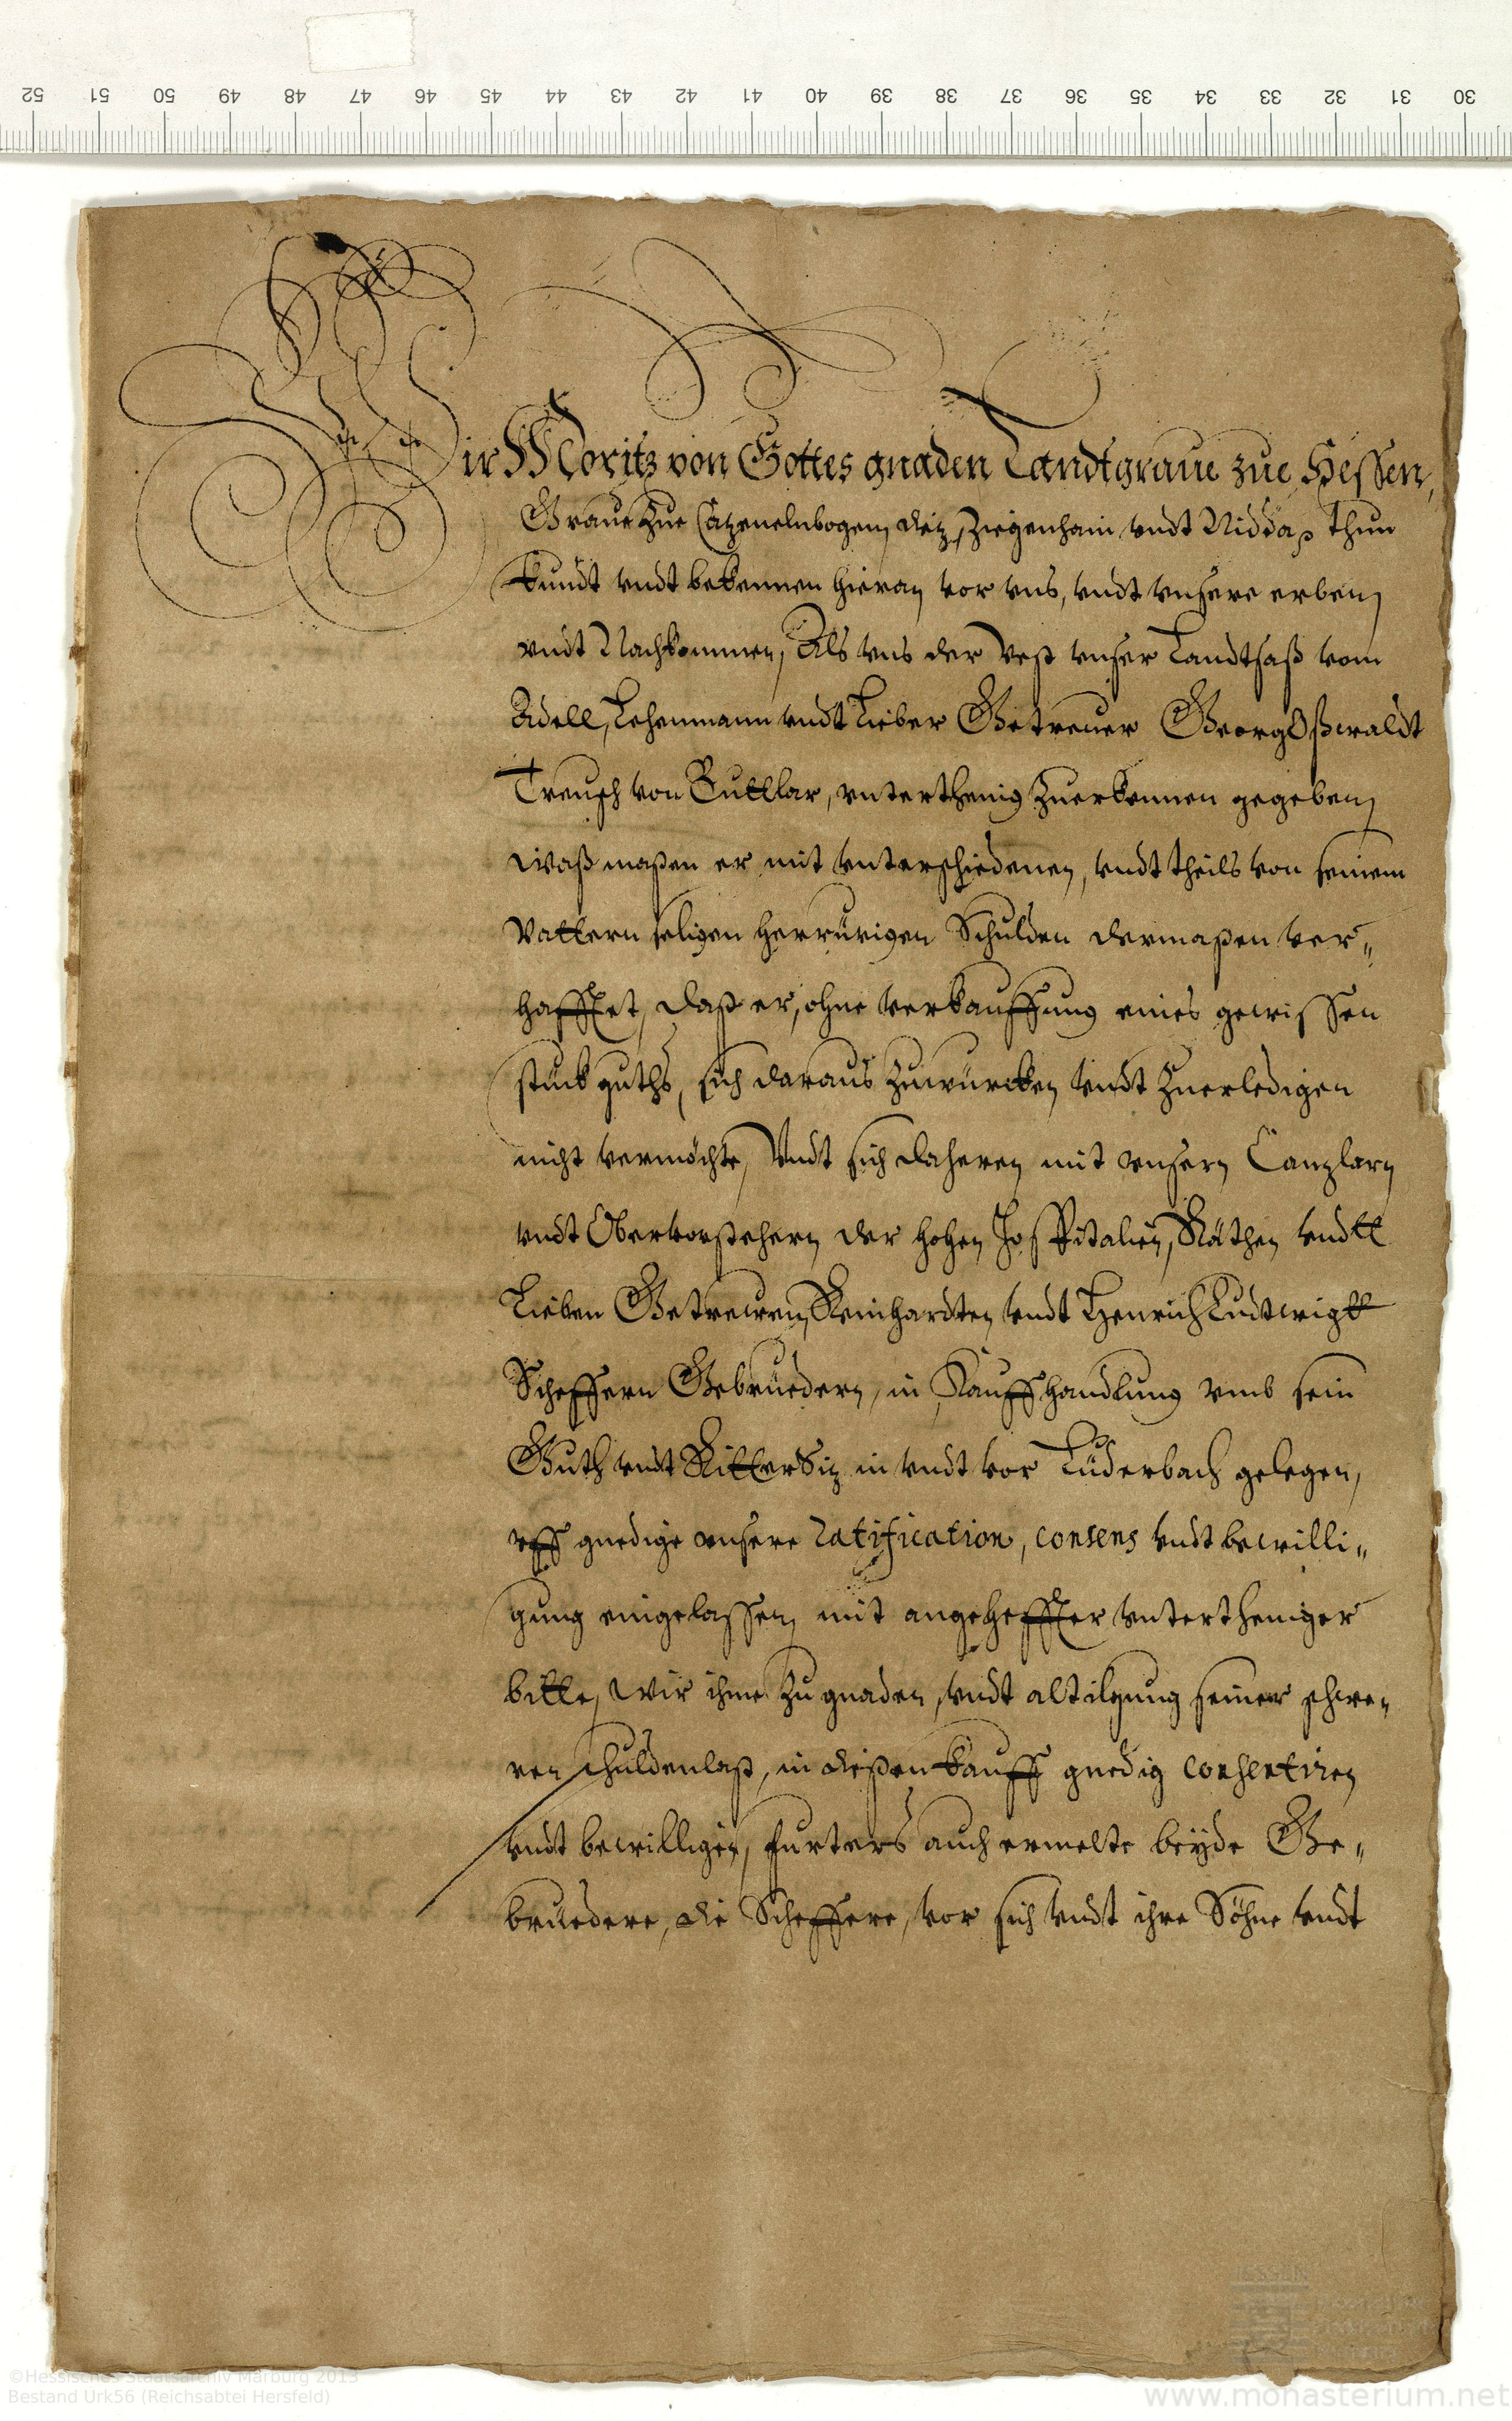 52 51 50 49 48 47 46 45 44 43 42 41 40 39 38 37 36 35 34 33 32 31 30
Wir Moritz von Gottes gnaden Landtgraue zue Hessen,
Graue zue Catzenelnbogen, Dietz, Ziegenhain vndt Nidda, Thun
kundt vndt bekennen hieran vor vns, vndt vnsere erben,
vndt Nachkommen, Als vns der Vest vnser Landtsaß vom
Adell, Lehenmann vndt Lieber Getreuer Georg Oßwaldt
Treusch von Buttlar, vnterthenig zuerkennen gegeben,
waß maßen er mit vnterschiedenen, vndt theils von seinem
Vattern seligen herrürigen Schulden dermaßen ver„
hafftet, daß er, ohne verkauffung eines gewissen
stück guths, sich daraus zuwürcken vndt zuerledigen
nicht vermöchte, Vndt sich daheren mit vnsern Canzlarn
vndt Obervorstehern der hohen Hospitalien, Räthen vndtt
Lieben Getrewen, Reinhardten vndt Henrich Ludtwigtt
Scheffern Gebrüedern, in Kauffhandlung vmb sein
Guth vndt Rittersitz in vndt vor Lüderbach gelegen,
vff gnedige vnsere ratification, consens vndt bewilli„
gung eingelassen, mit angeheffter vntertheniger
bitte, wir ihme zu gnaden, vndt abtilgung seiner schwe„
ren schuldenlast, in dießen kauff gnedig consentiren
vndt bewilligen, furters auch ermelte beyde Ge„
brüedere, die Scheffere, vor sich vndt ihre Söhne vndt
HESSEN
©Hessisches Staatsarchiv Marburg 2013
Bestand Urk56 (Reichsabtei Hersfeld)
www.monasterium.net